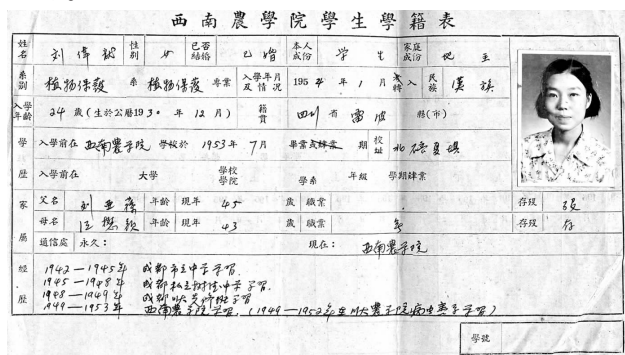 西南農學院學生學籍表
姓名 刘偉 性別 女 已否結婚 已婚 本人成份 学生 家庭成份 地主
系別 植物保護系 植物保護專業 入學年月及情況 1954年1月 轉入 民族 漢族
入學年齡 24歲(生於公曆1930年12月) 籍貫 四川省雷波縣(市)
學 入學前在西南農子院學校於1953年7月畢業或肄業期 校址 北碚夏垻
歷 入學前在 大學 學校學院 學系 年級 學期肄業
家 父名 刘 年齡 現年 45 歲 職業 存歿 歿
母名 懋 年齡 現年 43 歲 職業 無 存歿 存
屬 通信處 永久: 現在: 西南農子院
経 1942—1945年 成都市立中学学習.
1945—1948年 成都私立树德中学学習.
1948—1949年 成都
歷 1949—1953年 西南農子院学習.(1949—1952年在川大農子院病虫害系学習)
學號